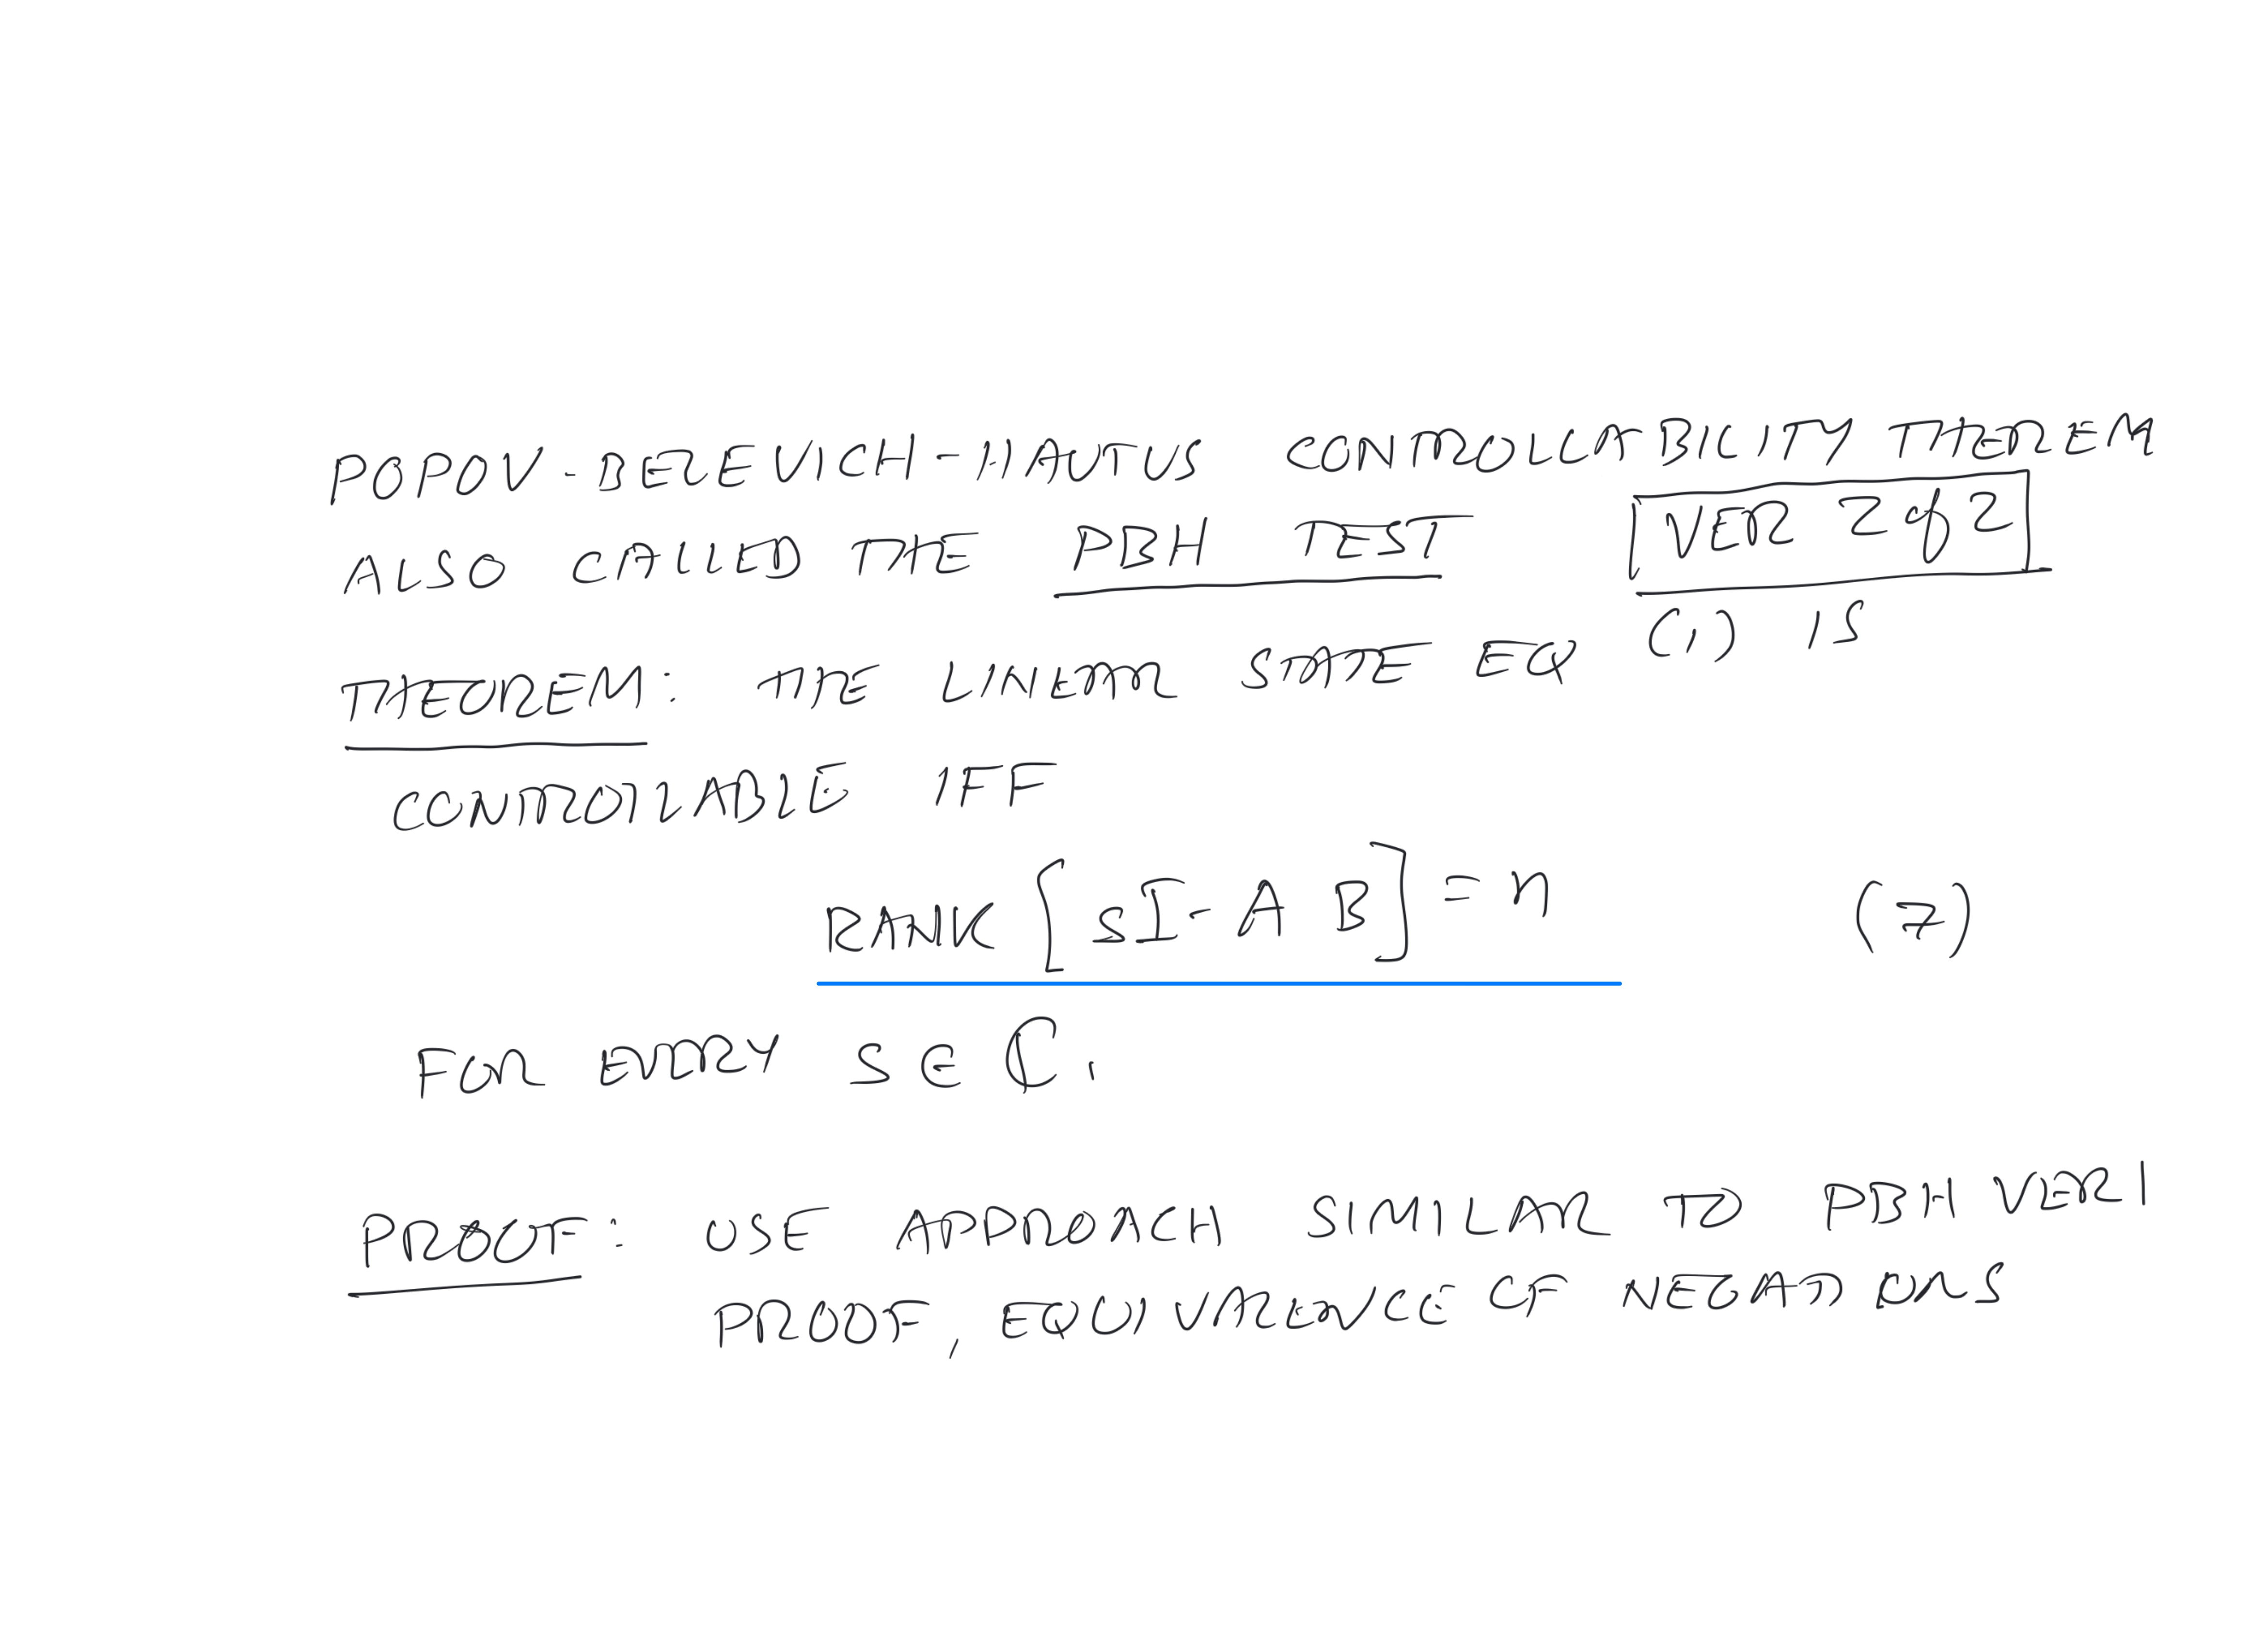 POPOV-BELEVICH-HAUTUS CONTROLLABILITY THEOREM
ALSO CALLED THE PBH TEST VER 2 of 2
THEOREM: THE LINEAR STATE EQ (1) IS
CONTROLLABLE IFF
RANK [sI-A B] = n (7)
FOR EVERY s ∈ ℂ.
PROOF: USE APPROACH SIMILAR TO PBH VER 1
PROOF, EQUIVALENCE OF NEGATIONS